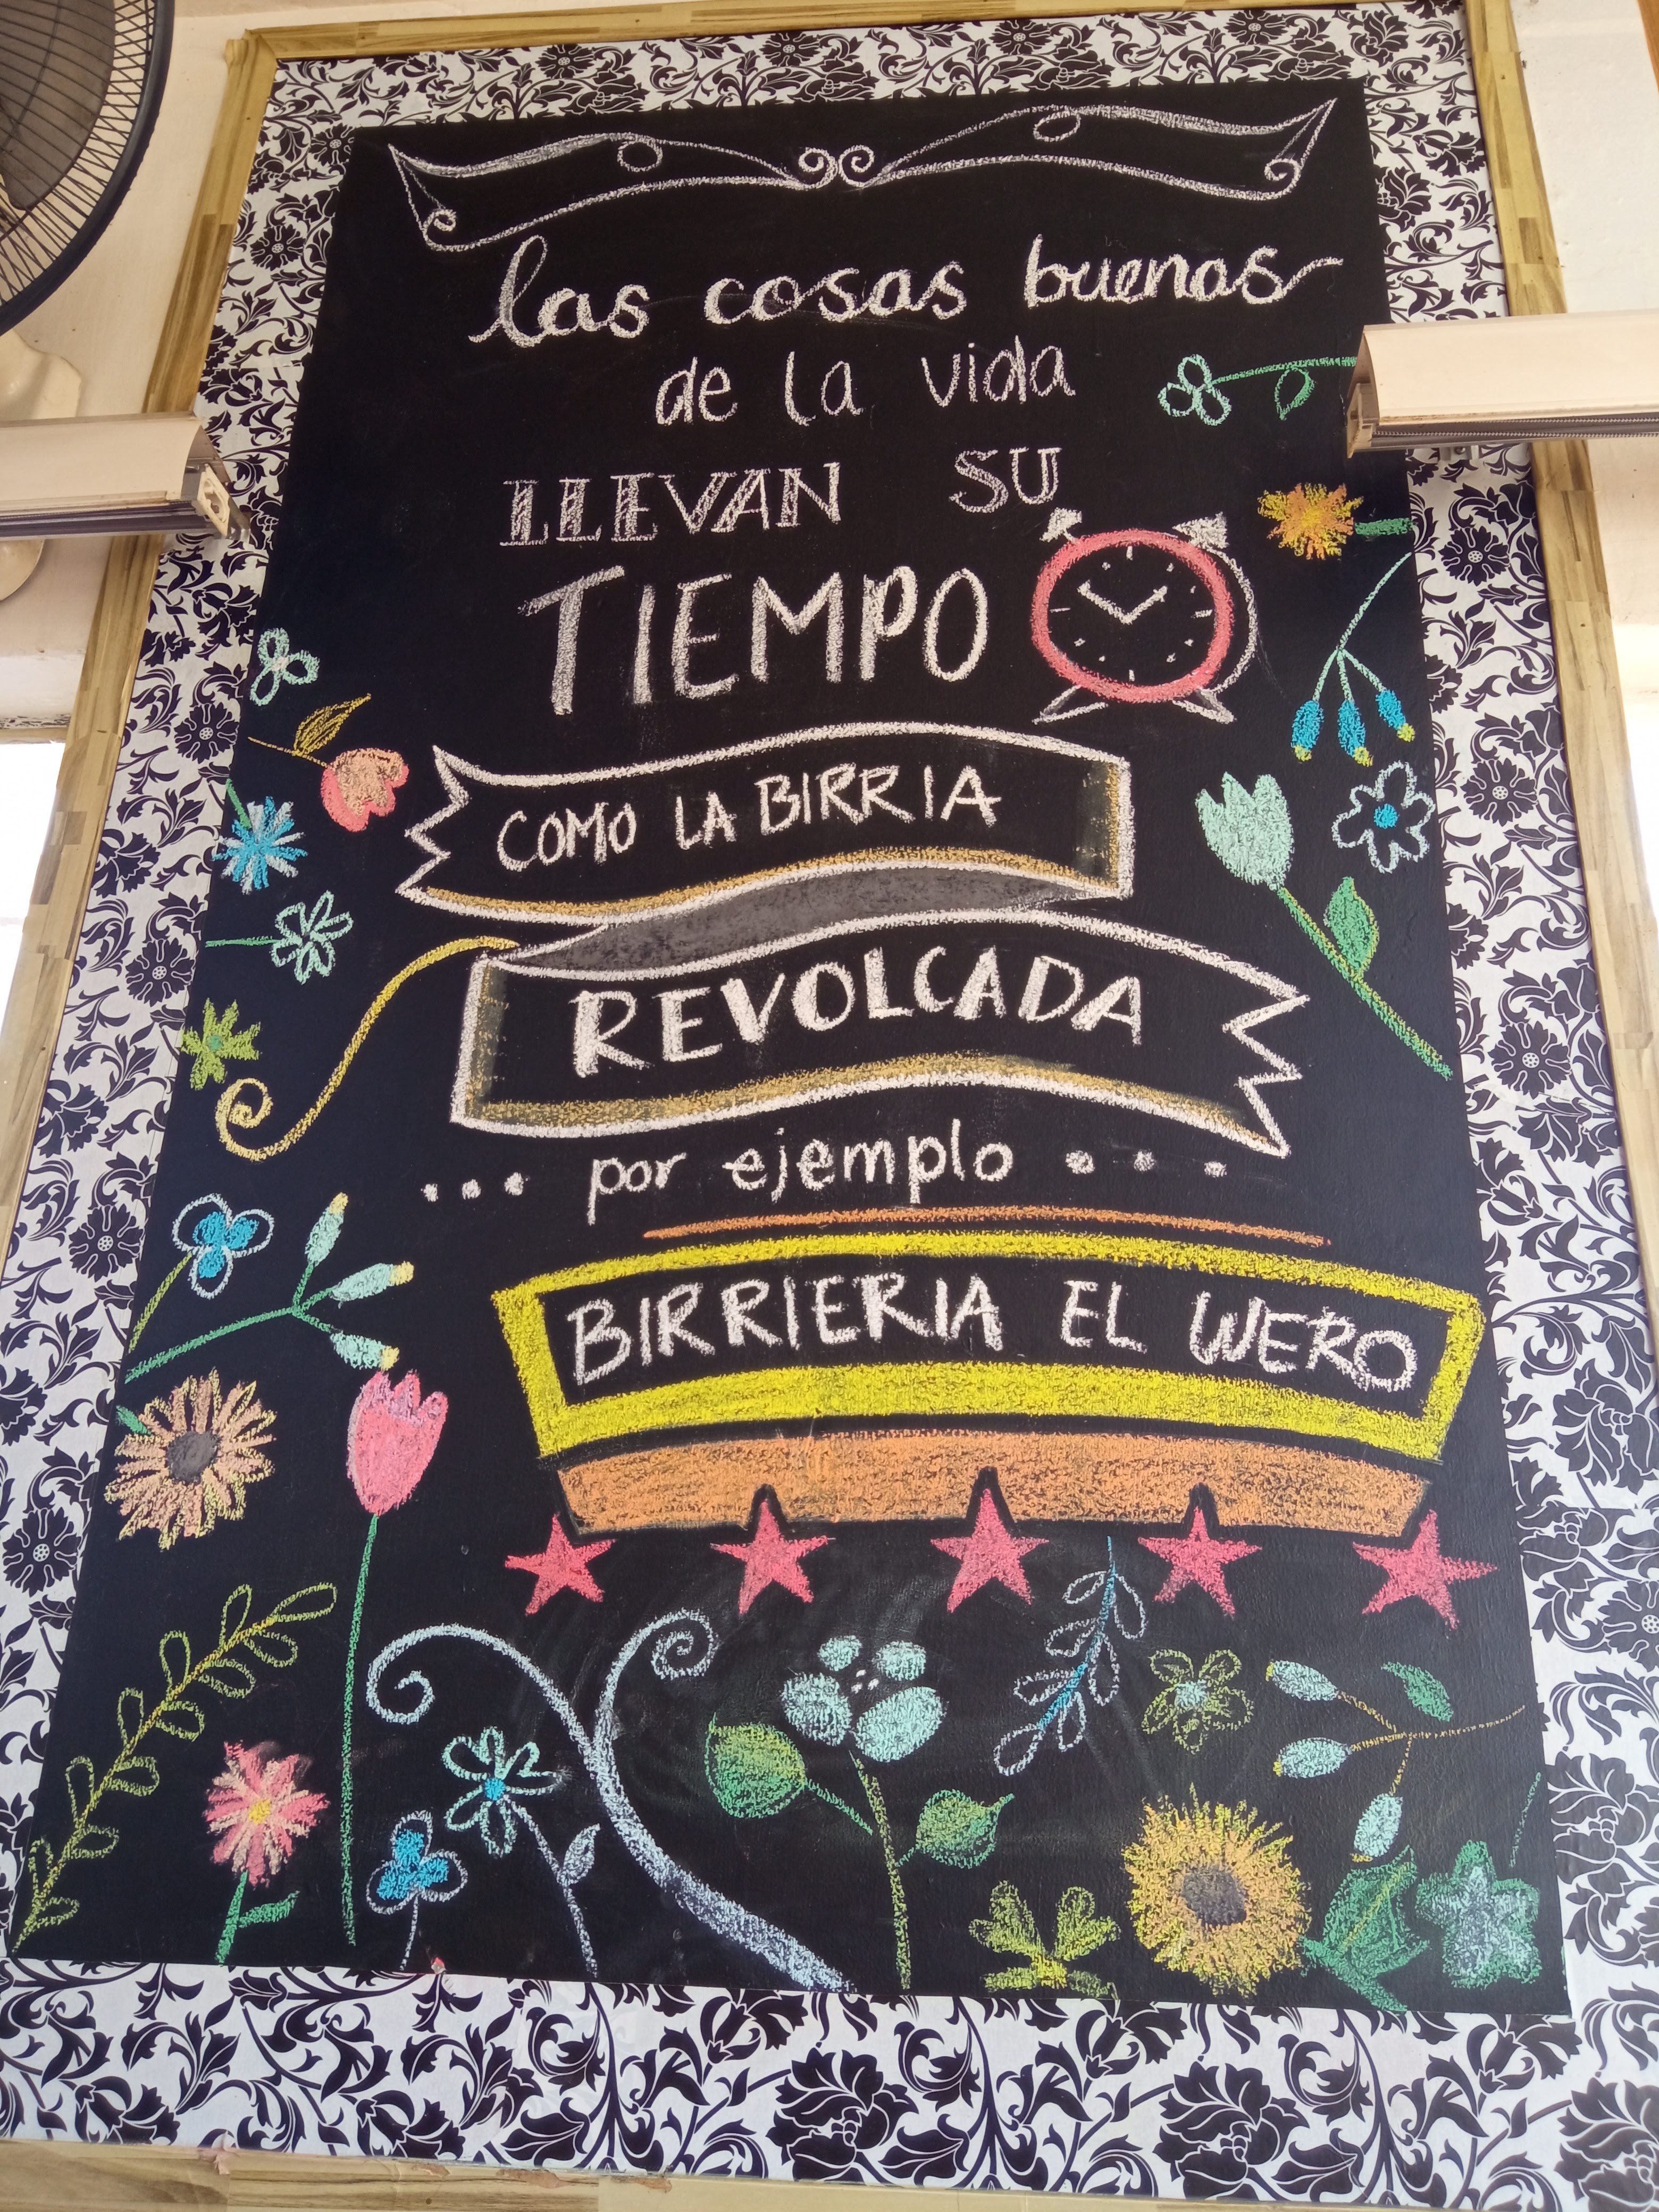 las cosas buenas
de la vida
LLEVAN SU
TIEMPO
COMO LA BIRRIA
REVOLCADA
... por ejemplo ...
BIRRIERIA EL WERO